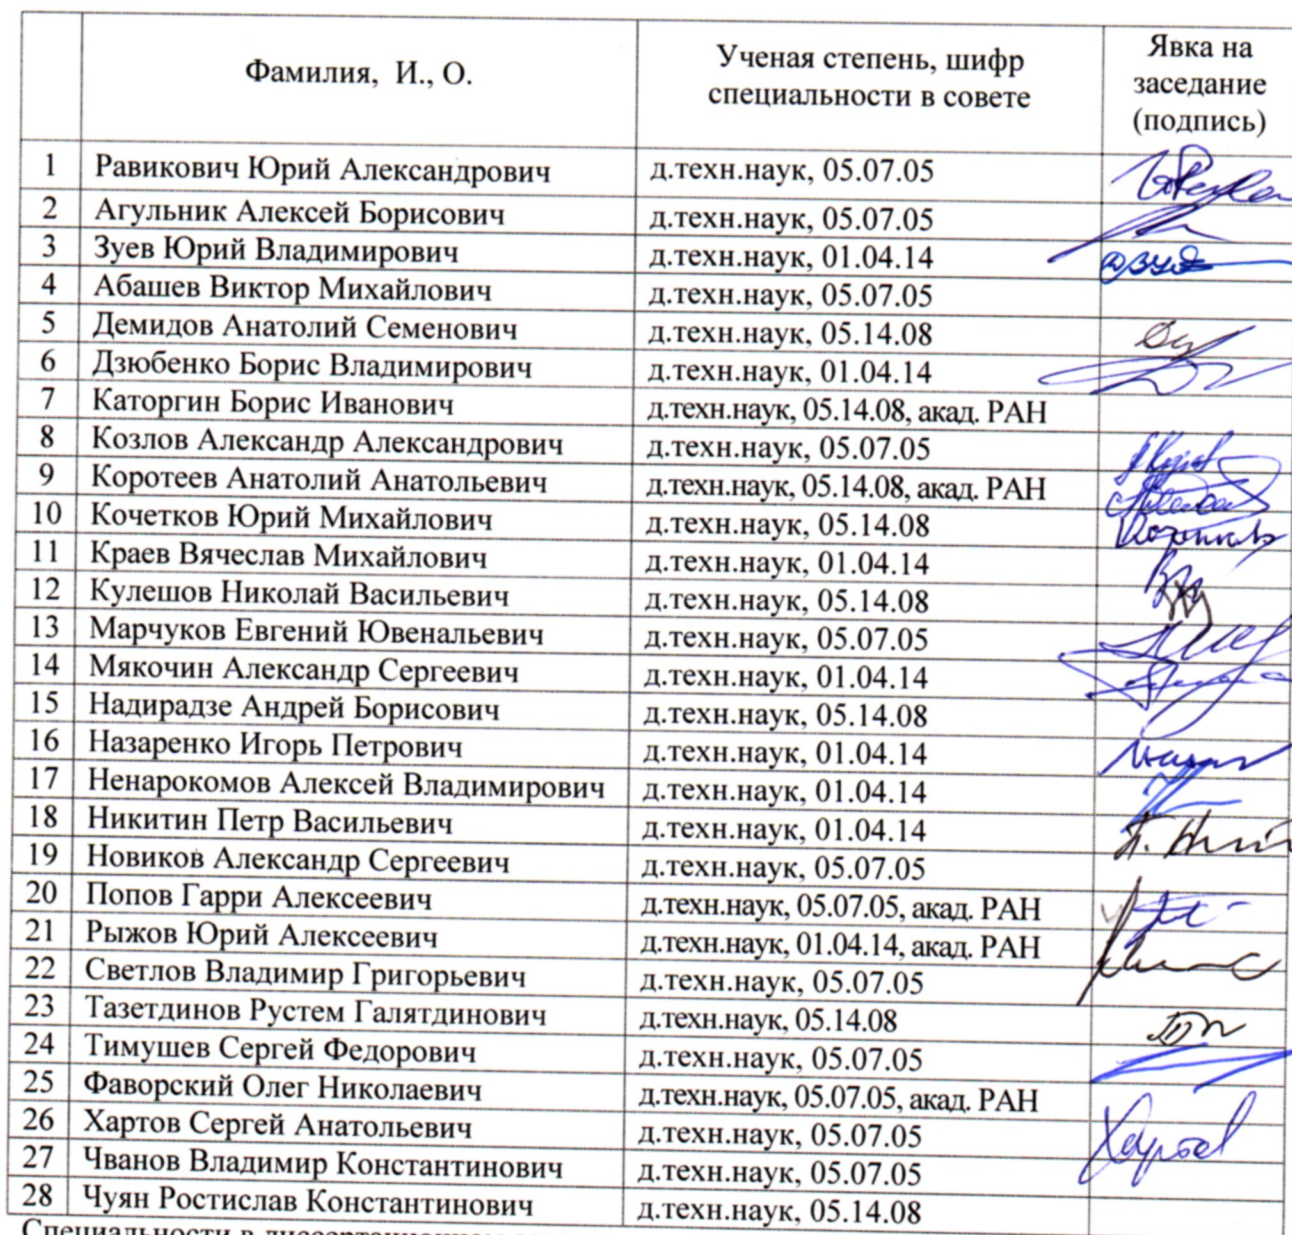 Фамилия, И., О.
Ученая степень, шифр
специальности в совете
Явка на
заседание
(подпись)
1 Равикович Юрий Александрович д.техн.наук, 05.07.05
2 Агульник Алексей Борисович д.техн.наук, 05.07.05
3 Зуев Юрий Владимирович д.техн.наук, 01.04.14
4 Абашев Виктор Михайлович д.техн.наук, 05.07.05
5 Демидов Анатолий Семенович д.техн.наук, 05.14.08
6 Дзюбенко Борис Владимирович д.техн.наук, 01.04.14
7 Каторгин Борис Иванович д.техн.наук, 05.14.08, акад. РАН
8 Козлов Александр Александрович д.техн.наук, 05.07.05
9 Коротеев Анатолий Анатольевич д.техн.наук, 05.14.08, акад. РАН
10 Кочетков Юрий Михайлович д.техн.наук, 05.14.08
11 Краев Вячеслав Михайлович д.техн.наук, 01.04.14
12 Кулешов Николай Васильевич д.техн.наук, 05.14.08
13 Марчуков Евгений Ювенальевич д.техн.наук, 05.07.05
14 Мякочин Александр Сергеевич д.техн.наук, 01.04.14
15 Надирадзе Андрей Борисович д.техн.наук, 05.14.08
16 Назаренко Игорь Петрович д.техн.наук, 01.04.14
17 Ненарокомов Алексей Владимирович д.техн.наук, 01.04.14
18 Никитин Петр Васильевич д.техн.наук, 01.04.14
19 Новиков Александр Сергеевич д.техн.наук, 05.07.05
20 Попов Гарри Алексеевич д.техн.наук, 05.07.05, акад. РАН
21 Рыжов Юрий Алексеевич д.техн.наук, 01.04.14, акад. РАН
22 Светлов Владимир Григорьевич д.техн.наук, 05.07.05
23 Тазетдинов Рустем Галятдинович д.техн.наук, 05.14.08
24 Тимушев Сергей Федорович д.техн.наук, 05.07.05
25 Фаворский Олег Николаевич д.техн.наук, 05.07.05, акад. РАН
26 Хартов Сергей Анатольевич д.техн.наук, 05.07.05 Хартов
27 Чванов Владимир Константинович д.техн.наук, 05.07.05
28 Чуян Ростислав Константинович д.техн.наук, 05.14.08
Специальности в